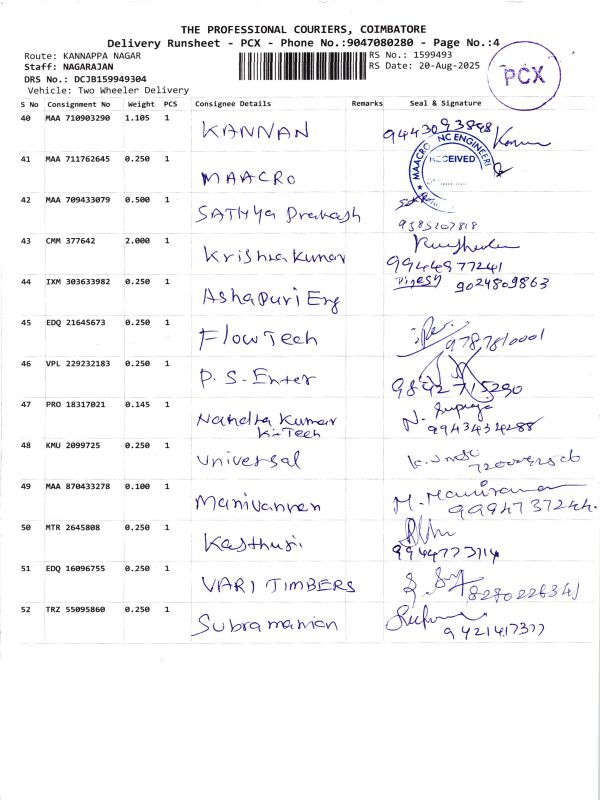 THE PROFESSIONAL COURIERS, COIMBATORE
Delivery Runsheet - PCX - Phone No.:9047080280 - Page No.:4
Route: KANNAPPA NAGAR
RS No.: 1599493
Staff: NAGARAJAN
RS Date: 20-Aug-2025
DRS No.: DCJB159949304
Vehicle: Two Wheeler Delivery
PCX
S No Consignment No Weight PCS Consignee Details Remarks Seal & Signature
40 MAA 710903290 1.105 1 KANNAN
41 MAA 711762645 0.250 1 MAACRO RECEIVED
42 MAA 709433079 0.500 1 SATHYa Prakash 9585207818
43 CMM 377642 2.000 1 Krishna Kumar 9944977241
44 IXM 303633982 0.250 1 AshaPuri Eng 9024809863
45 EDQ 21645673 0.250 1 FlowTech
46 VPL 229232183 0.250 1 P.S. Enter 9842715290
47 PRO 18317021 0.145 1 Nandha Kumar
K-Tech 9943434288
48 KMU 2099725 0.250 1 Universal
49 MAA 870433278 0.100 1 Manivannan
50 MTR 2645808 0.250 1 Kasthuri
51 EDQ 16096755 0.250 1 VARI TIMBERS 8270226341
52 TRZ 55095860 0.250 1 Subramanian 9421417377